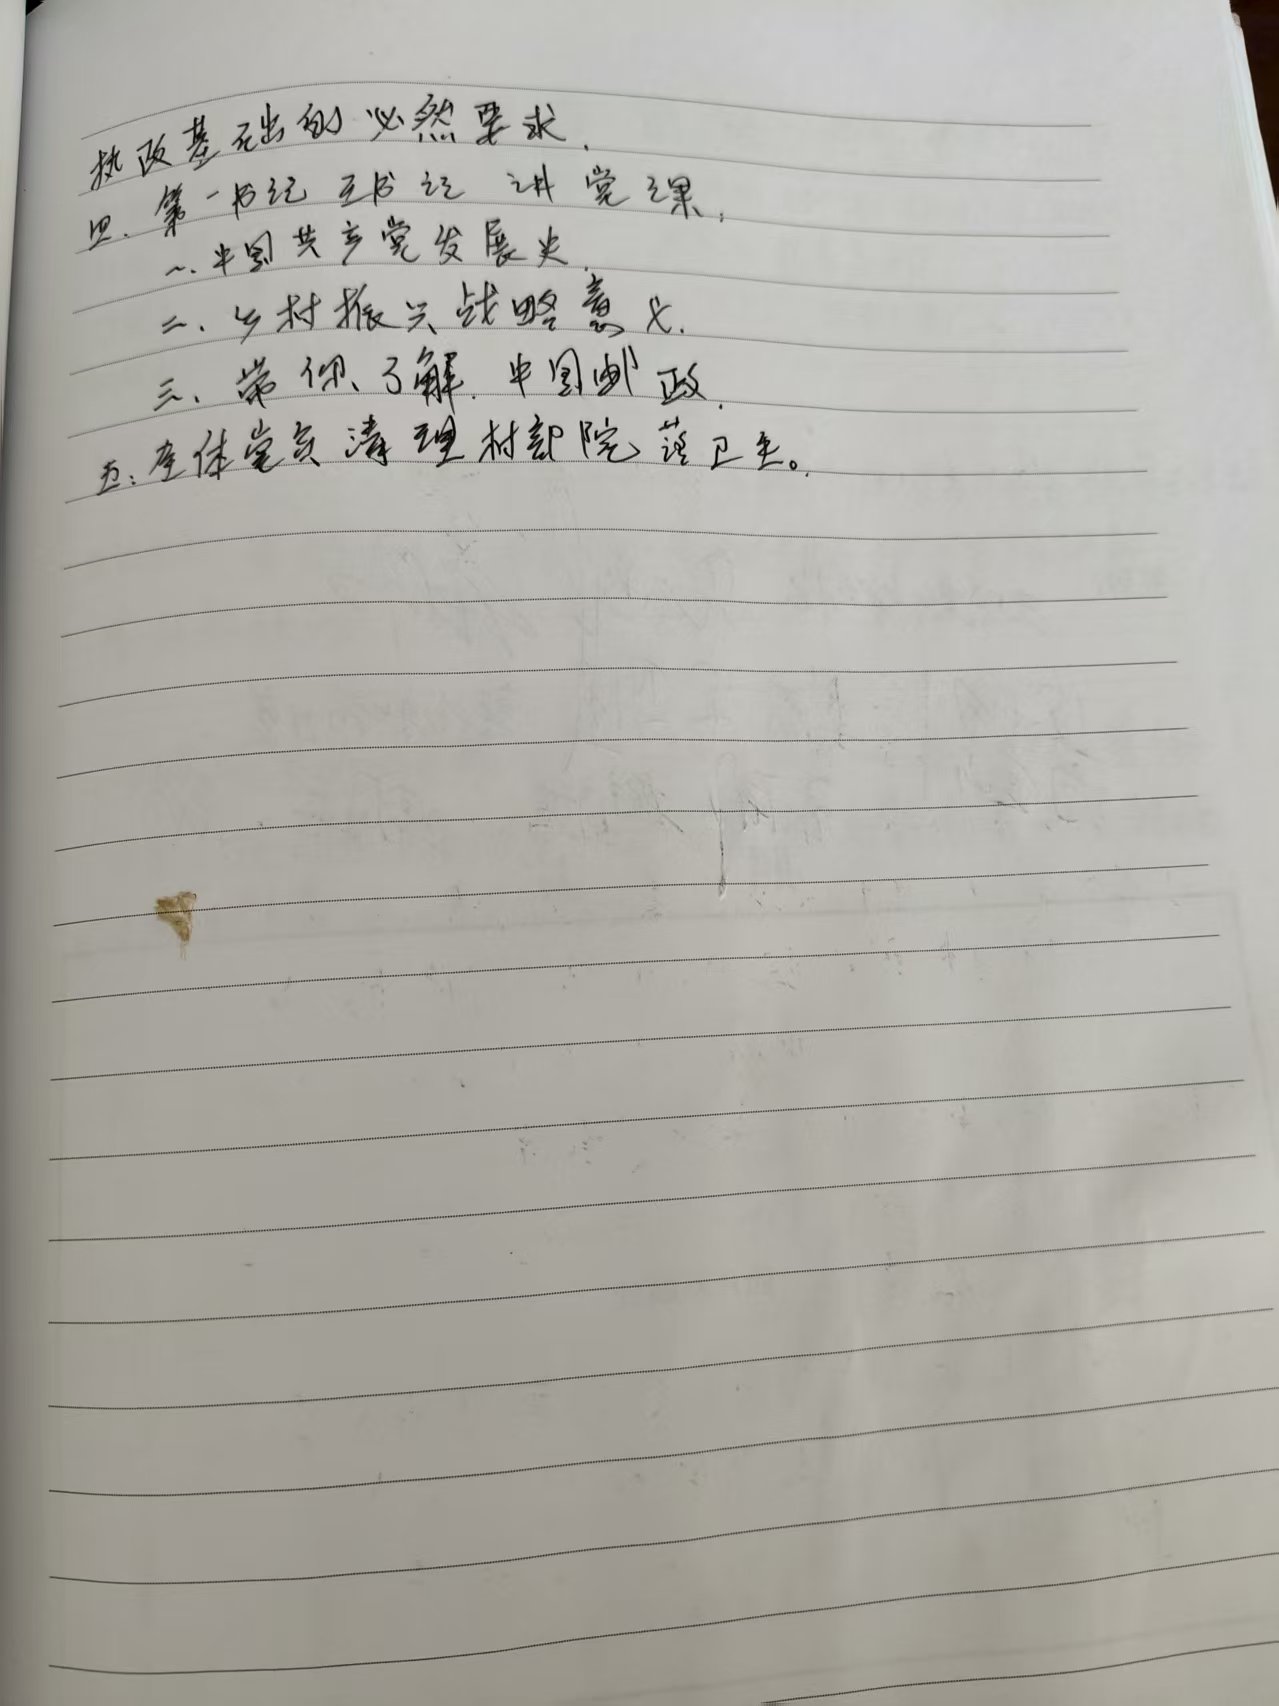 执政基础的必然要求.
四.第一书记 王书记 讲党课.
一.中国共产党发展史.
二、乡村振兴战略意义.
三、带你了解.中国邮政.
五:全体党员清理村部院落卫生。